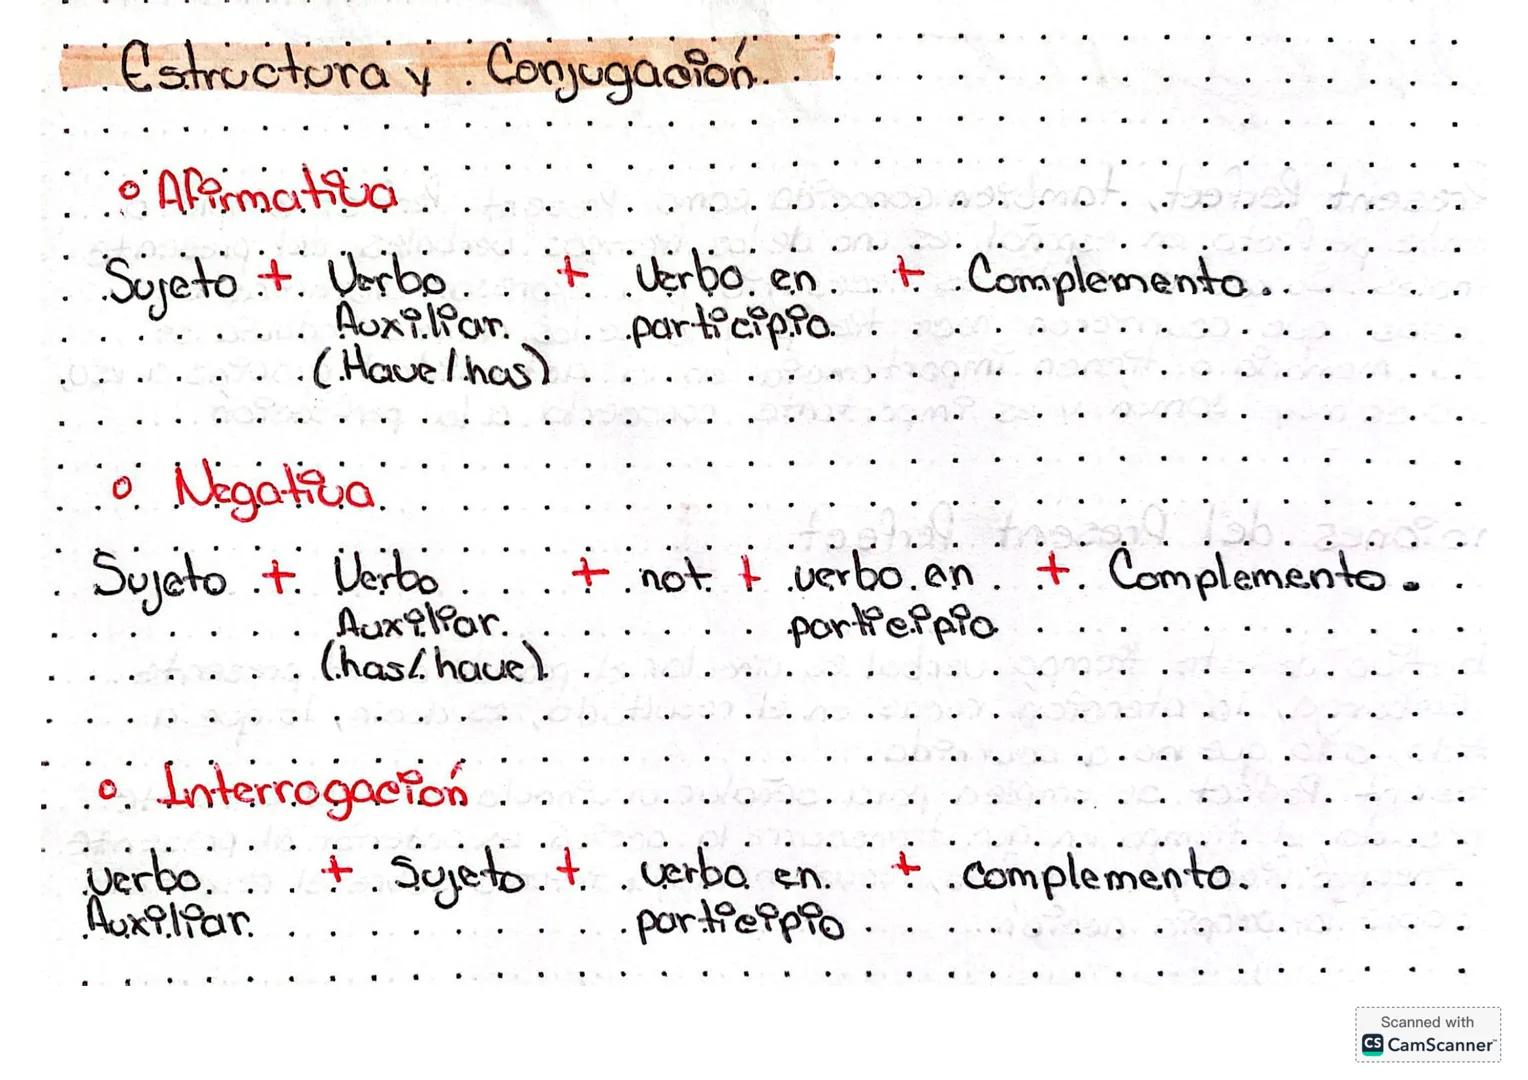 Estructura y Conjugación.
Afirmativa
Sujeto + Verbo + Verbo en + Complemento.
Auxiliar participio
(Have/has)
Negativa
Sujeto + Verbo + not + verbo en + Complemento.
Auxiliar participio
(has/have)
Interrogación
verbo + Sujeto + verbo en + complemento.
Auxiliar participio
Scanned with
CS CamScanner